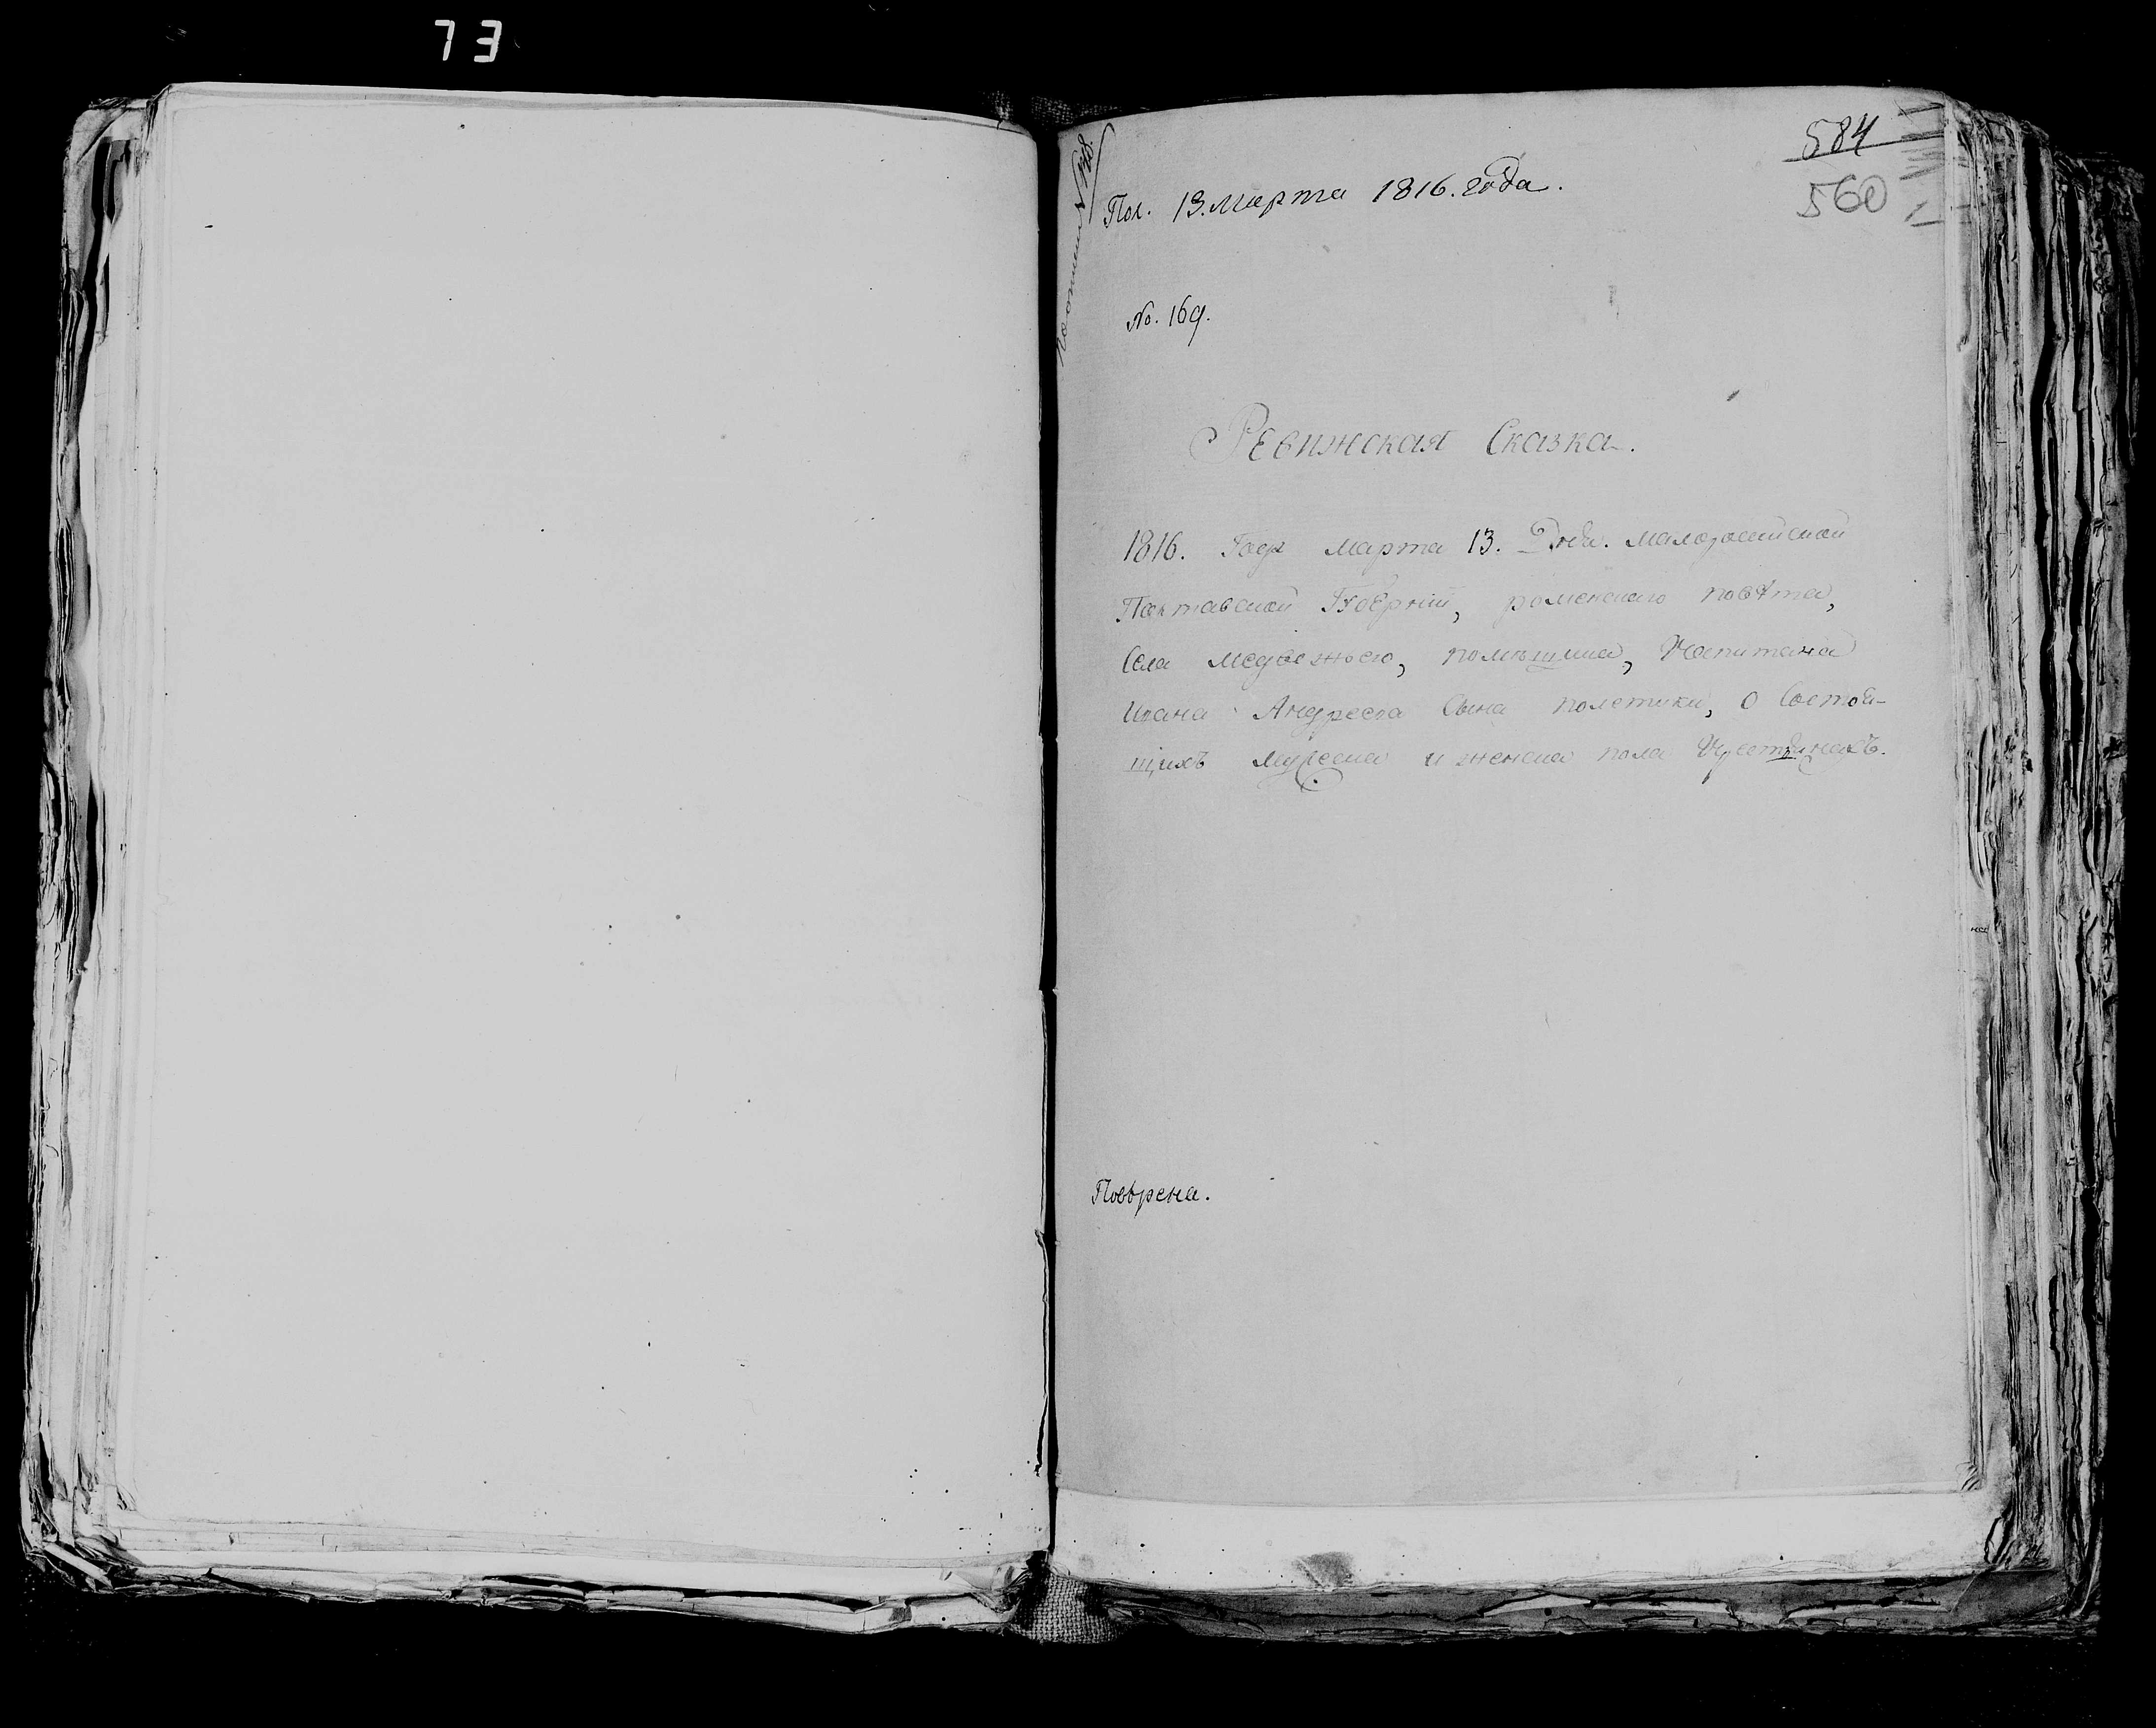 73
584
560
Пол. 13. марта 1816. года.
No. 169.
Ревижская Сказка.
1816. Года марта 13. Дня. малороссийской
Полтавской Губернии, роменского повѣта,
Села медвежього, помѣщика, Капитана
Ивана Андреева Сына полетики, о Состоя-
щихъ мужеска и женска пола Крестянахъ.
Повѣрена.